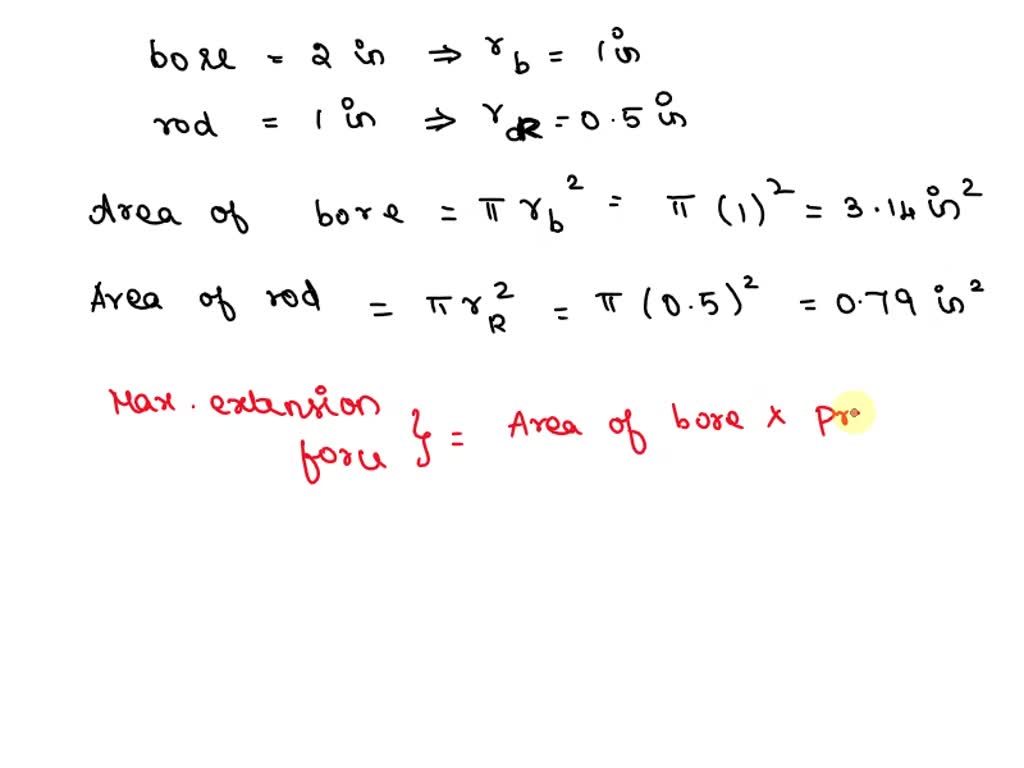 bore = 2 in ⇒ r_b = 1 in
rod = 1 in ⇒ r_R = 0.5 in
Area of bore = π r_b² = π (1)² = 3.14 in²
Area of rod = π r_R² = π (0.5)² = 0.79 in²
Max. extension
force } = Area of bore × Pr